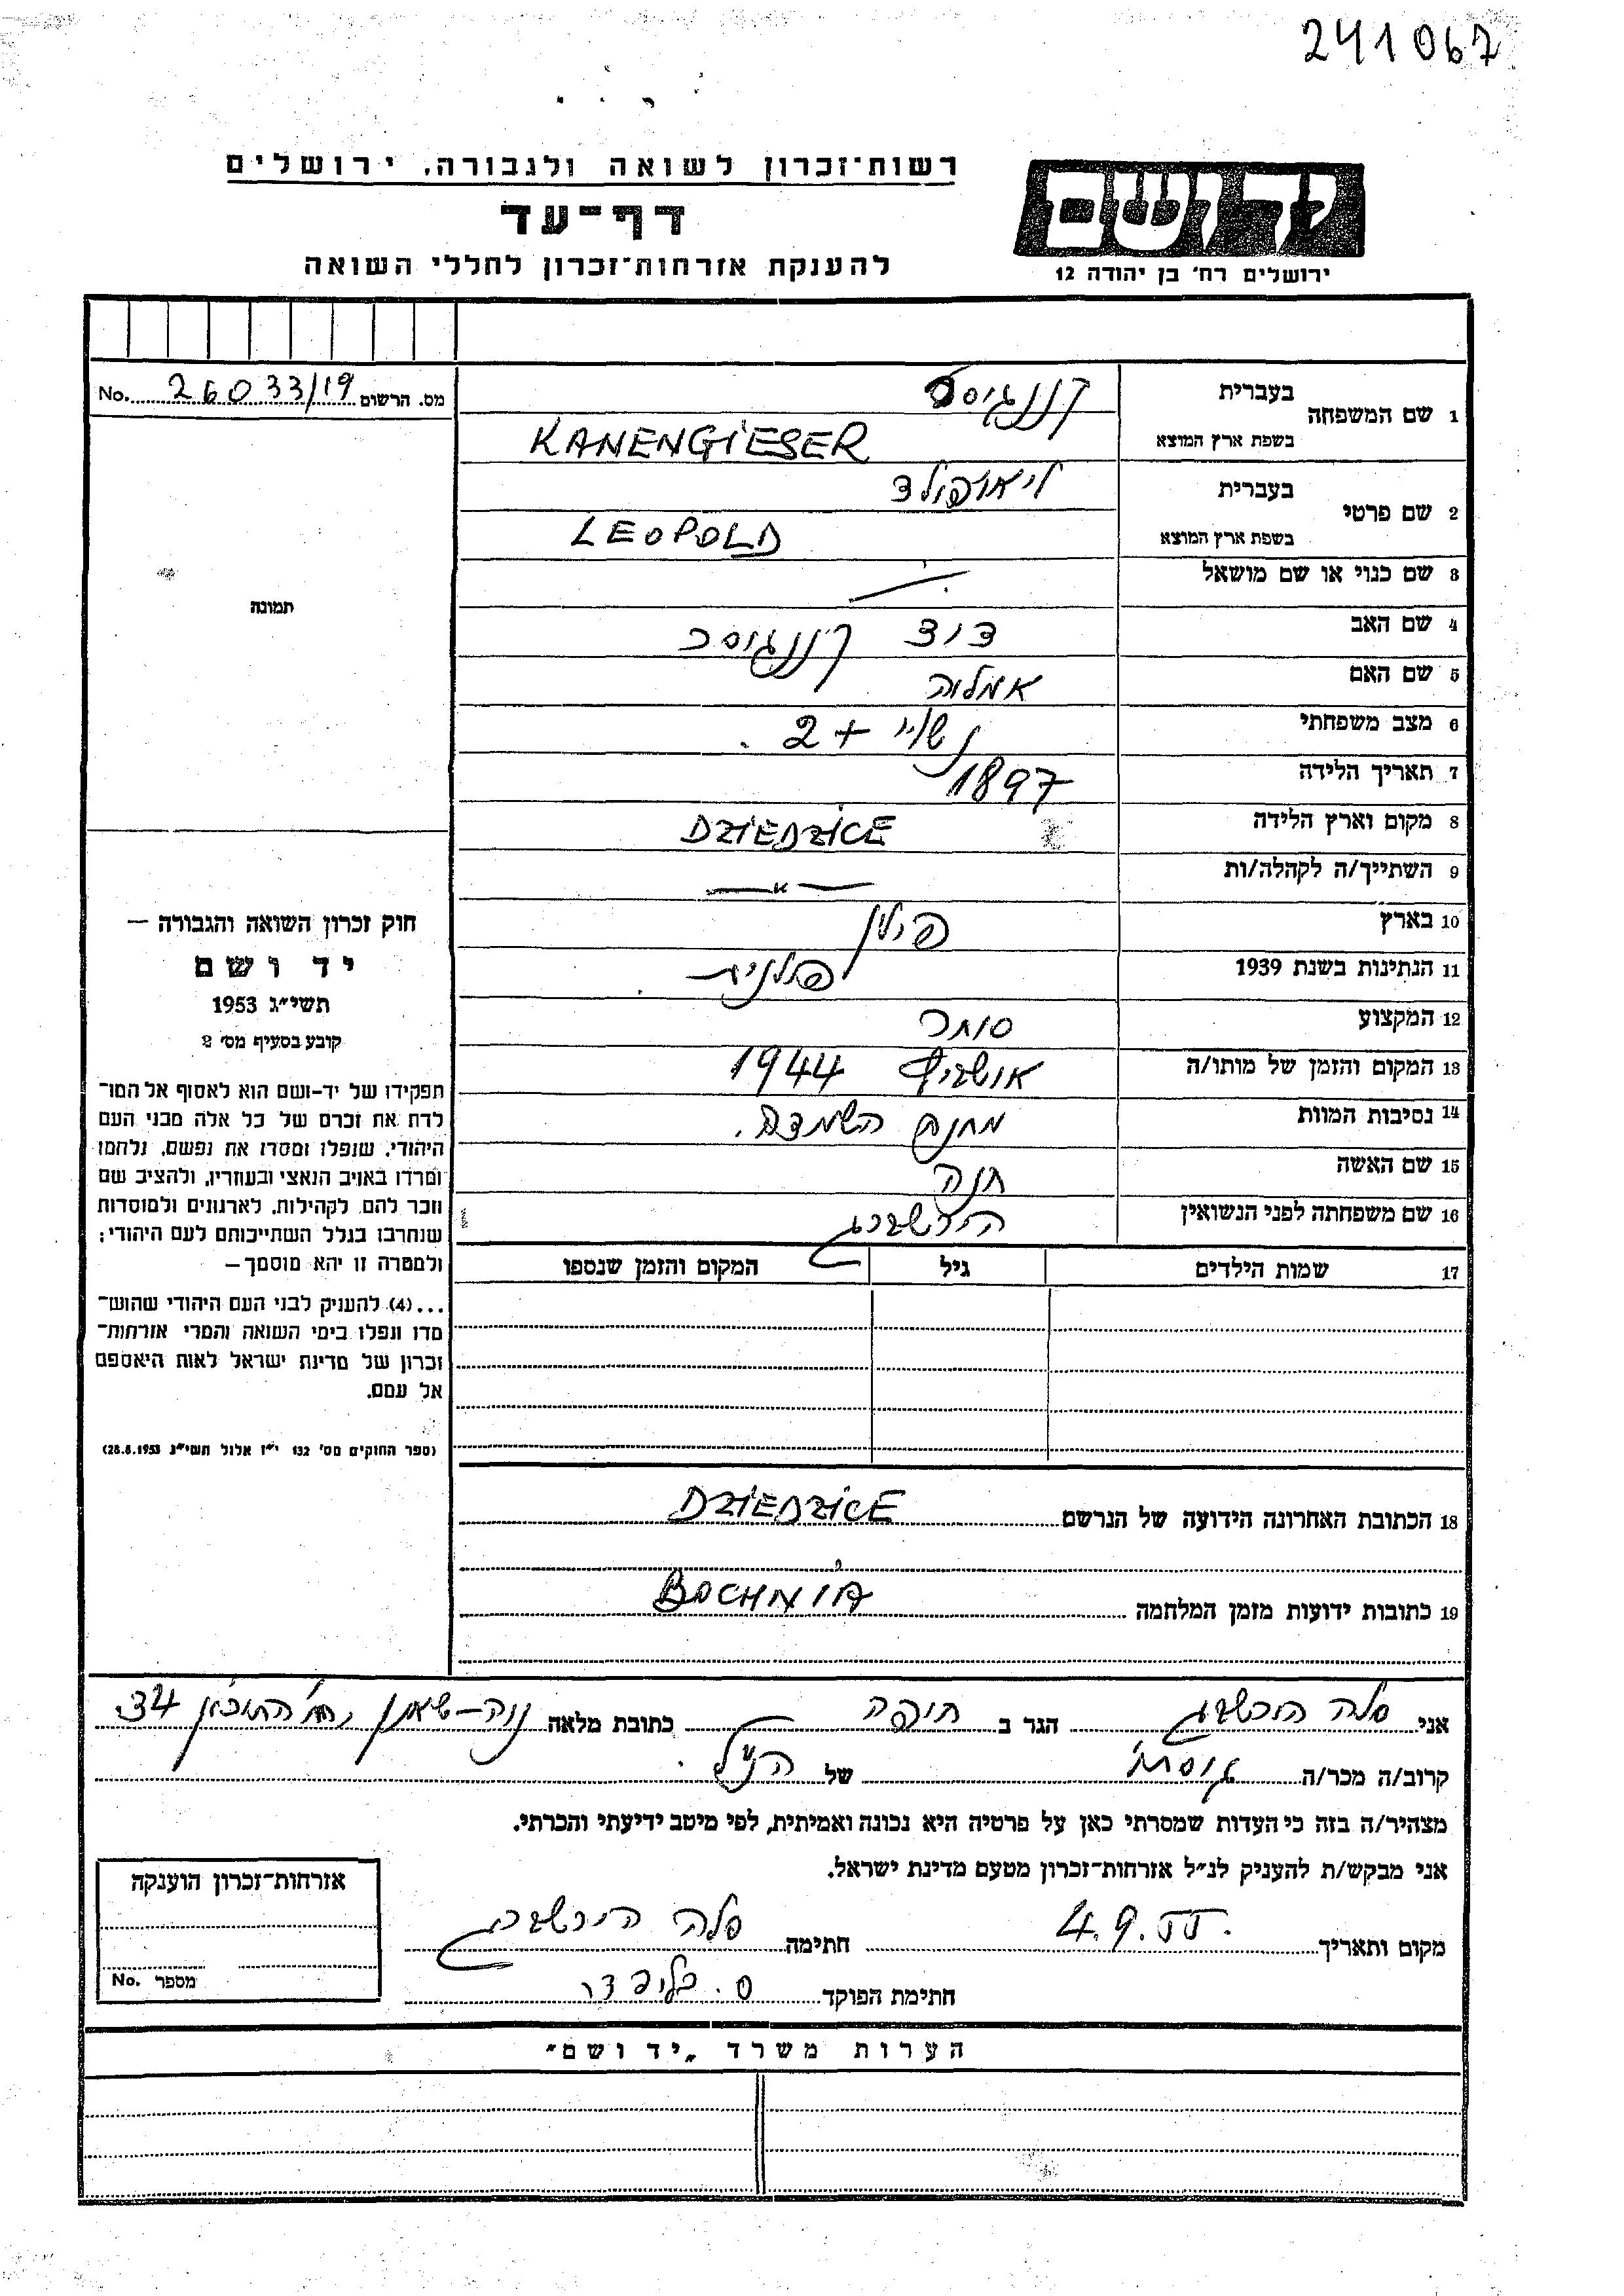 241067
רשות־זכרון לשואה ולגבורה, ירושלים
דף־עד
להענקת אזרחות־זכרון לחללי השואה
יד ושם
ירושלים רח' בן יהודה 12
מס. הרשום 26033/19 No.
תמונה
1 שם המשפחה בעברית קננגיסר
בשפת ארץ המוצא KANENGIESER
2 שם פרטי בעברית ליאופולד
בשפת ארץ המוצא LEOPOLD
3 שם כנוי או שם מושאל —
4 שם האב דוד קננגיסר
5 שם האם אמליה
6 מצב משפחתי נשוי + 2.
7 תאריך הלידה 1897
8 מקום וארץ הלידה DZIEDZICE
9 השתייך/ה לקהלה/ות — " —
10 בארץ פולין
11 הנתינות בשנת 1939 פולנית
12 המקצוע סוחר
13 המקום והזמן של מותו/ה אושויץ 1944
14 נסיבות המוות מחנה השמדה.
15 שם האשה חנה
16 שם משפחתה לפני הנשואין הירשברג
17 שמות הילדים גיל המקום והזמן שנספו
חוק זכרון השואה והגבורה —
יד ושם
תשי״ג 1953
קובע בסעיף מס' 2
תפקידו של יד־ושם הוא לאסוף אל המו־
לדת את זכרם של כל אלה מבני העם
היהודי, שנפלו ומסרו את נפשם, נלחמו
ומרדו באויב הנאצי ובעוזריו, ולהציב שם
וזכר להם לקהילות, לארגונים ולמוסדות
שנחרבו בגלל השתייכותם לעם היהודי:
ולמטרה זו יהא מוסמך —
...(4) להעניק לבני העם היהודי שהוש־
מדו ונפלו בימי השואה והמרי אזרחות־
זכרון של מדינת ישראל לאות היאספם
אל עמם.
(ספר החוקים מס' 132 י״ז אלול תשי״ג 28.8.1953)
18 הכתובת האחרונה הידועה של הנרשם DZIEDZICE
19 כתובות ידועות מזמן המלחמה BOCHNIA
אני סלה הירשברג הגר ב חיפה כתובת מלאה נוה-שאנן, 34
קרוב/ה מכר/ה גיסתו של הנ״ל.
מצהיר/ה בזה כי העדות שמסרתי כאן על פרטיה היא נכונה ואמיתית, לפי מיטב ידיעתי והכרתי.
אני מבקש/ת להעניק לנ״ל אזרחות־זכרון מטעם מדינת ישראל.
מקום ותאריך 4.9.55. חתימה סלה הירשברג
חתימת הפוקד
אזרחות־זכרון הוענקה
מספר No.
הערות משרד „יד ושם״